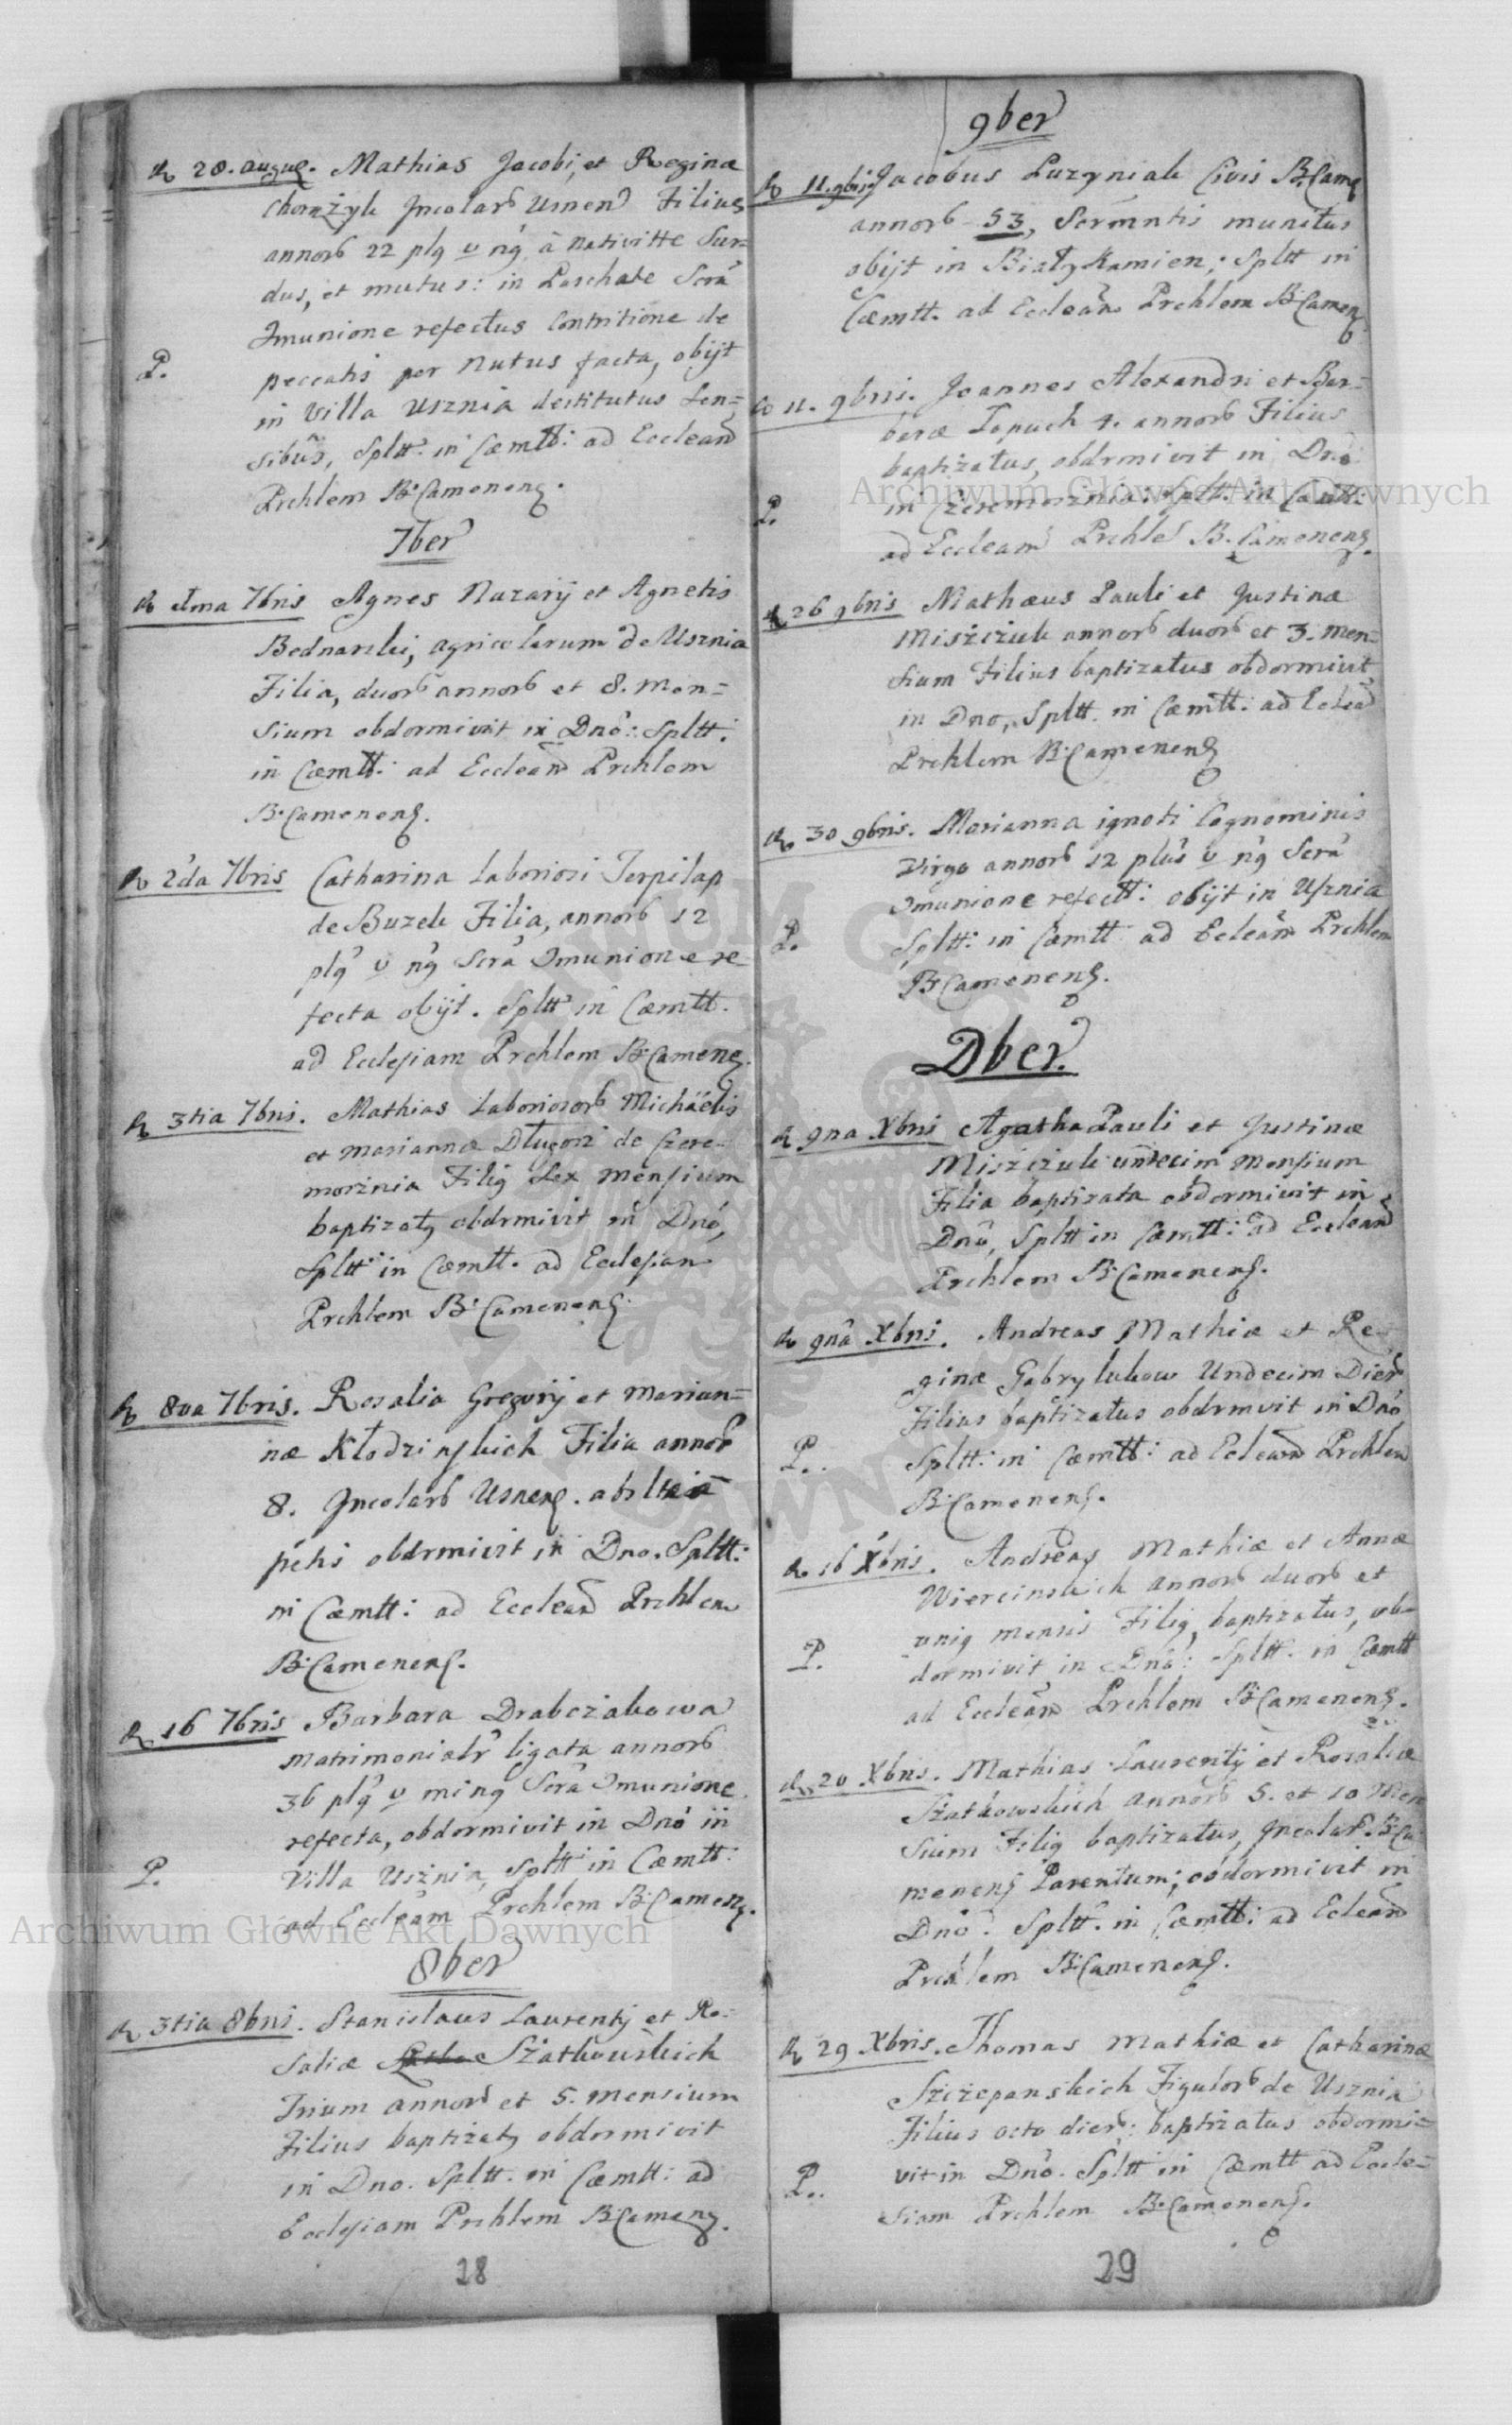 R 28. Augus. Mathias Jacobi, et Reginæ
Choneżyk Incolarb Usnen Filius
annorb 22 plq v ng à nativitte Sur=
dus, et mutus: in Paschate Scrâ
Omunione refectus Contritione de
P. peccatis per nutus facta, obijt
in Villa Usznia destitutus Sen=
sibus, Spltt: in Cæmtt: ad Eccleam
Prchlem B.Camenens.
7ber
R 1ma 7bris Agnes Nazarij et Agnetis
Bednarski, agricolarum de Usznia
Filia, duorb annorb et 8. Men=
sium obdormivit in Dno: Spltt:
in Cæmtt: ad Eccleam Prchlem
B.Camenens.
R 2da 7bris Catharina Laboriosi Terpilap
de Buzek Filia, annorb 12
plq v ng Scrâ Omunione re=
fecta obijt. Spltt in Cæmtt.
ad Ecclesiam Prchlem B.Camenens.
R 3tia 7bris. Mathias Laboriosorb Michaëlis
et Mariannæ Długosz de Czere=
mosznia Filiq Sex mensium
baptizatq obdrmivit in Dno,
Spltt in Cæmtt. ad Ecclesiam
Prchlem B.Camenens.
R 8va 7bris. Rosalia Gregorij et Marian=
næ Kłodzinskich Filia annorb
8. Incolarb Usnens. abs
pctis obdrmivit in Dno. Spltt:
in Cæmtt: ad Eccleam Prchlem
B.Camenens.
R 16 7bris Barbara Drabczakowa
matrimonialr ligata annorb
36 plq v minq Scrâ Omunione
refecta, obdormivit in Dno in
P. Villa Usznia, Spltt in Cæmtt:
ad Eccleam Prchlem B.Camen.
8ber
R 3tia 8bris. Stanislaus Laurentij et Ro=
saliæ Szatkowskich
Trium annorb et 5. mensium
Filius baptizatq obdormivit
in Dno. Spltt. in Cæmtt: ad
Ecclesiam Prchlem B.Camenq.
28
9ber
R 11. 9bris Jacobus Luzyniak Civis B.Camen
annorb 53, Scrmntis munitus
obijt in Białykamien; Spltt in
Cæmtt. ad Eccleam Prchlem B.Camen.
R 11. 9bris. Joannes Alexandri et Bar=
baræ Lopuch 4. annorb Filius
baptizatus, obdrmivit in Dno
P. in Czeremosznia: Spltt. in Cæmtt:
ad Eccleam Prchle B.Camenens.
R 26 9bris Mathæus Pauli et Justinæ
Miszczuk annorb duorb et 3. Men=
sium Filius baptizatus obdormivit
in Dno, Spltt. in Cæmtt: ad Eccleam
Prchlem B.Camenens
R 30 9bris. Marianna ignoti Cognominis
Virgo annorb 12 plus v nq Scrâ
Omunione refectt: obijt in Usznia
P. Spltt: in Cæmtt ad Eccleam Prchlem
B.Camenens.
Dber.
R 9na Xbris Agatha Pauli et Justinæ
Miszczuk undecim Mensium
Filia baptizata obdormivit in
Dno, Spltt in Cæmtt: ad Eccleam
Prchlem B.Camenens.
R 9na Xbris. Andreas Mathiæ et Re=
ginæ Gabrylukow Undecim Dierb
Filius baptizatus obdrmvit in Dno
P. Spltt: in Cæmtt: ad Eccleam Prchlem
B.Camenens.
R 16 Xbris. Andreas Mathiæ et Annæ
Wiercinskich annorb duorb et
uniq mensis Filiq, baptizatus, ob=
P. dormivit in Dno: Spltt. in Cæmtt
ad Eccleam Prchlem B.Camenens.
R 20 Xbris. Mathias Laurentij et Rosaliæ
Szatkowskich annorb 5. et 10 Men
sium Filiq baptizatus, Incolarb B.Ca
menens Parentum; obdormivit in
Dno. Spltt. in Cæmtt: ad Eccleam
Prchlem B.Camenens.
R 29 Xbris. Thomas Mathiæ et Catharinæ
Szczepanskich Figulorb de Usznia
Filius octo dierb: baptizatus obdormi=
P. vit in Dno. Spltt in Cæmtt ad Eccle=
siam Prchlem B.Camenens.
29
Archiwum Główne Akt Dawnych
Archiwum Główne Akt Dawnych